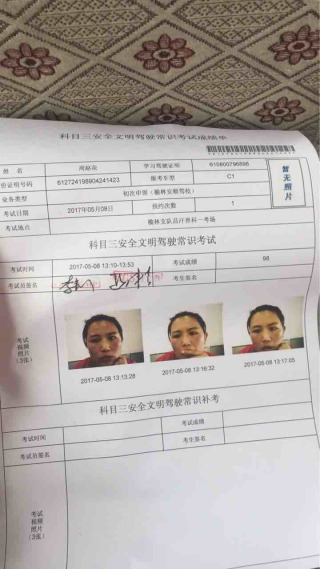 科目三安全文明驾驶常识考试成绩单
姓 名 学习驾驶证明 610800796898
身份证明号码 612724198904241423 报考车型 C1
业务类型 初次申领（榆林安顺驾校）
考试日期 2017年05月08日 预约次数 1
考试地点 榆林支队吕汗界科一考场
暂无照片
科目三安全文明驾驶常识考试
考试时间 2017-05-08 13:10-13:53 考试成绩 98
考试员签名 考生签名
考试视频照片(3张)
2017-05-08 13:13:28 2017-05-08 13:16:32 2017-05-08 13:17:05
科目三安全文明驾驶常识补考
考试时间 考试成绩
考试员签名 考生签名
考试视频照片(3张)